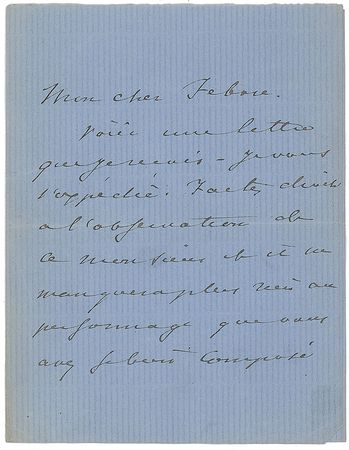 Mon cher Febvre.
Voici une lettre
que je reçois – je vous
l'expédie. Faites droit
a l'observation de
ce monsieur et il ne
manquera plus rien au
personnage que vous
avez si bien composé